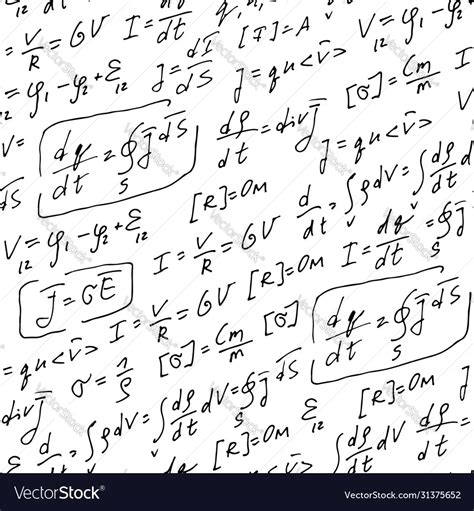 = V/R = GV I = dq/dt dI [I] = A V₁₂ = φ₁ - φ₂
= φ₁ - φ₂ + Ɛ₁₂ j = dI/dS j = qn<v̄> [σ] = Cm/m
V = dq/dt = ∮ j̄ dS̄ dρ/dt = div j̄ j = qn<v̄>
[R] = Oм d/dt ∫ρdV = ∫ dρ/dt
V₁₂ = φ₁ - φ₂ + Ɛ₁₂ I = V/R = GV [R] = Oм I = dq/dt = ∮ j̄
j̄ = σĒ I = V/R = GV [σ] dq/dt = ∮ j̄ dS̄
= qn<v̄> σ = 1/ρ [σ] = Cm/m
div j̄ d/dt ∫ρdV = ∫ dρ/dt dV = ∮ j̄ dS̄ [R] = Oм
[R] = Oм Ɛ₁₂ ρdV = ∫ dρ/dt
VectorStock®
VectorStock.com/31375652